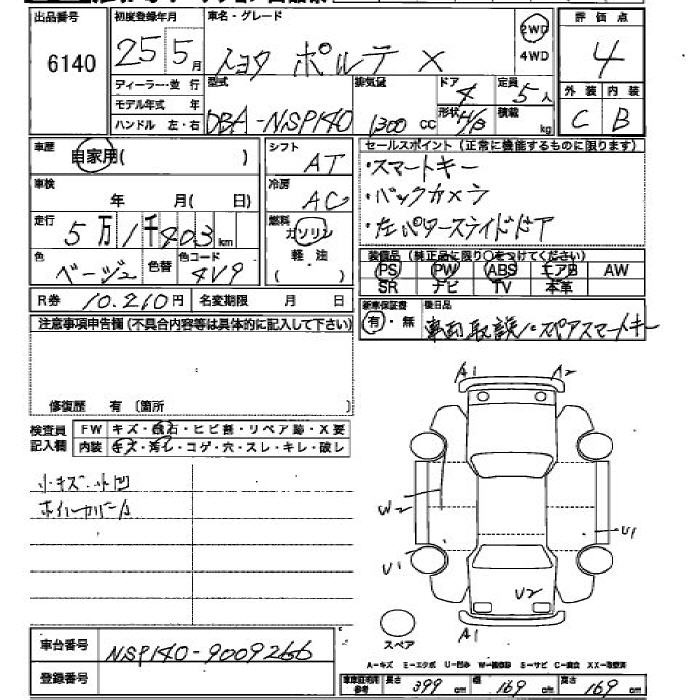 出品番号
6140
初度登録年月
25 5月
車名・グレード
トヨタ ポルテ X
2WD
4WD
評価点
4
外装 内装
C B
ディーラー・並 行
モデル年式 年
ハンドル 左・右
型式
DBA-NSP140
排気量
1300 CC
ドア
4
形状
H/B
定員
5人
積載
kg
車歴
自家用( )
車検
年 月( 日)
走行
5万1千403km
色
ベージュ
色替
色コード
4V9
シフト
AT
冷房
AC
燃料
ガソリン
軽油
( )
セールスポイント(正常に機能するものに限ります)
・スマートキー
・バックカメラ
・左パワースライドドア
装備品(純正品に限り○をつけてください)
PS PW ABS エアB AW
SR ナビ TV 本革
R券 10.210円 名変期限 月 日
新車保証書
有・無
後日品
車両取説/・スペアスマートキー
注意事項申告欄(不具合内容等は具体的に記入して下さい)
修復歴 有〔箇所 〕
検査員
記入欄
FW キズ・飛石・ヒビ割・リペア跡・X要
内装 キズ・汚レ・コゲ・穴・スレ・キレ・破レ
小キズ・小凹
ホイルカバーA
A1 A2
W2
U1
U1
U2
A1
スペア
車台番号
NSP140-9009266
登録番号
A−キズ E−エクボ U−凹み W−補修跡 S−サビ C−腐食 XX−取替済
車庫証明用
参考
長さ 399 cm 幅 169 cm 高さ 169 cm